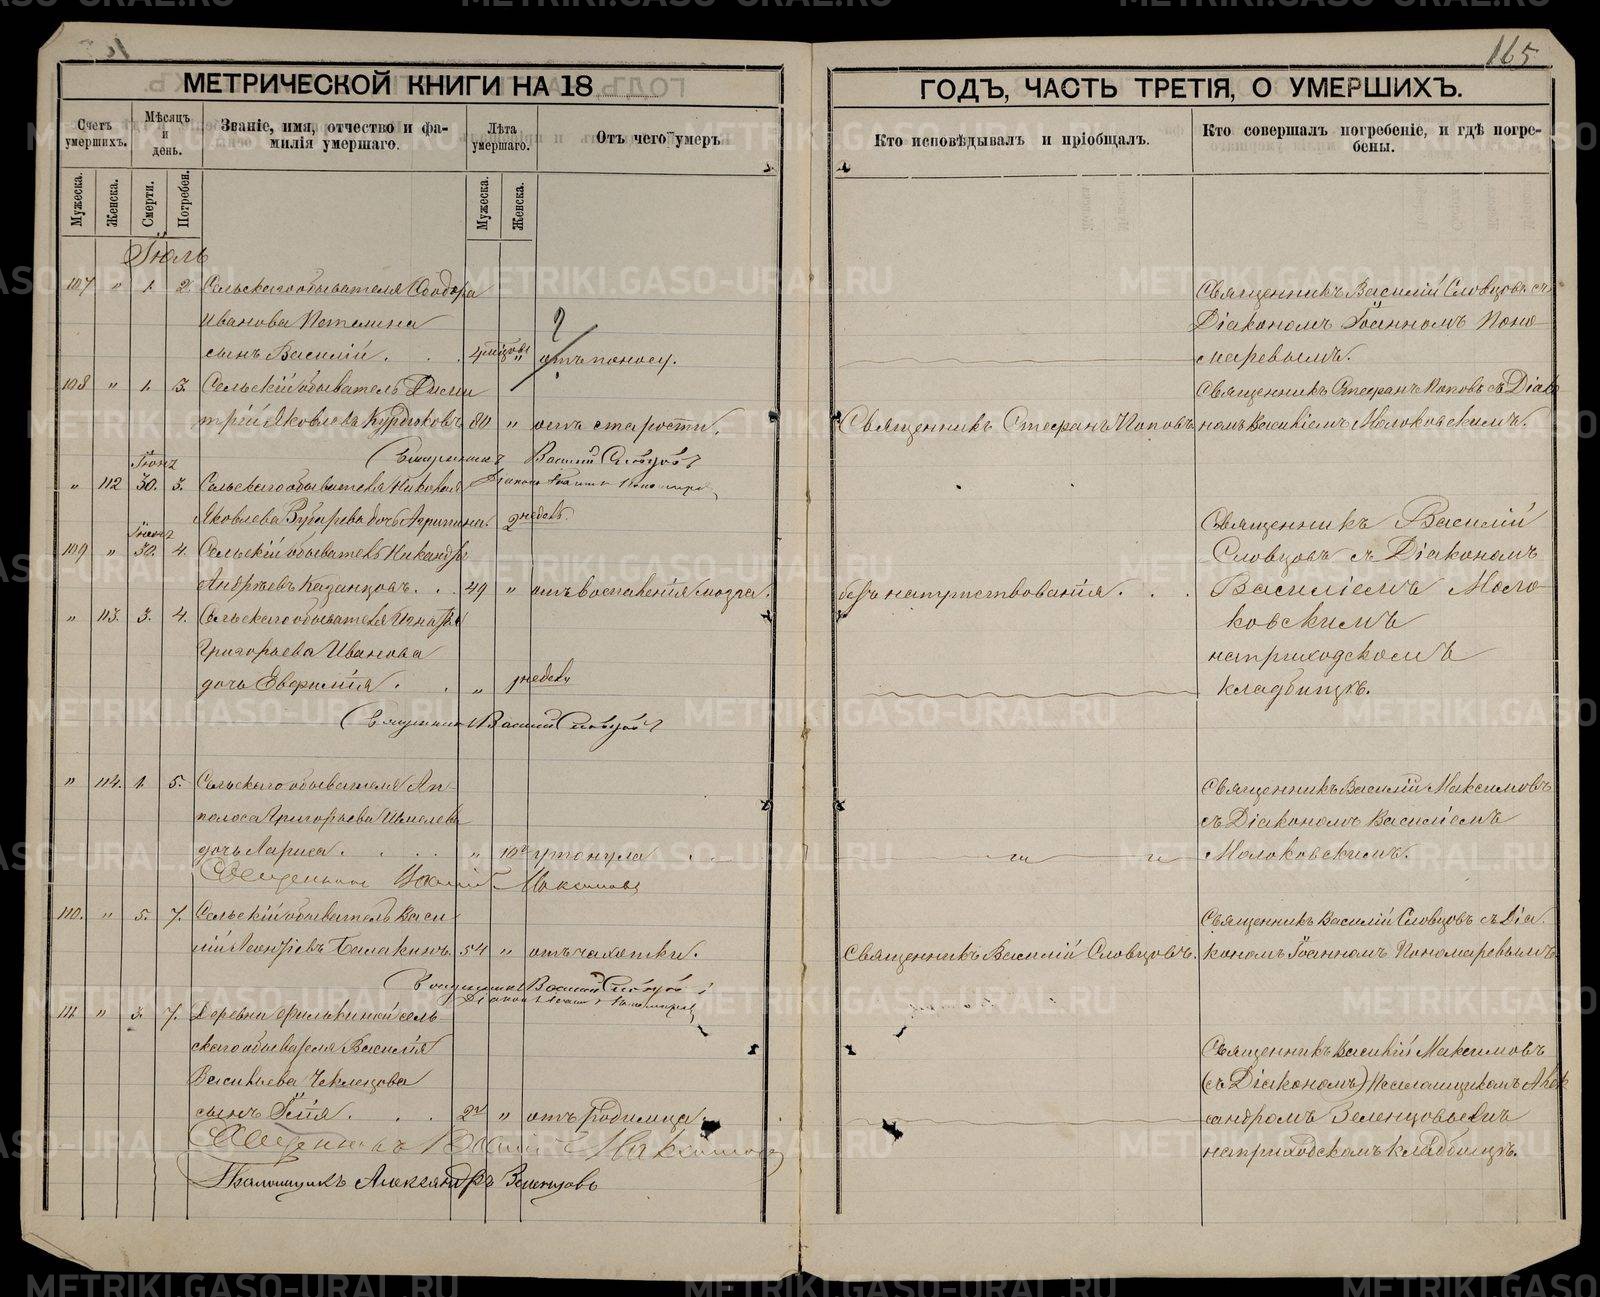 165
МЕТРИЧЕСКОЙ КНИГИ НА 18
ГОДЪ, ЧАСТЬ ТРЕТІЯ, О УМЕРШИХЪ.
Счетъ умершихъ.
Мѣсяцъ и день.
Званіе, имя, отчество и фамилія умершаго.
Лѣта умершаго.
Отъ чего умеръ
Кто исповѣдывалъ и пріобщалъ.
Кто совершалъ погребеніе, и гдѣ погребены.
Мужеска.
Женска.
Смерти.
Погребен.
Мужеска.
Женска.
Іюль
107 " 1. 2. Сельскаго обывателя Ѳеодора
Иванова
сынъ Василій. 4 отъ поносу.
Священникъ Василій Словцовъ съ
Діакономъ Іоанномъ Поно-
маревымъ.
108 " 1. 3. Сельскій обыватель Дими
трій Яковлевъ Курдюковъ 80 " отъ старости.
Священникъ Стефанъ Поповъ
Священникъ Стефанъ Поповъ съ Діако
номъ Василіемъ Молоковскимъ.
Священникъ Василій Словцовъ
Діаконъ Іоаннъ Пономаревъ
Іюня
" 112 30. 3. Сельскаго обывателя Николая
Яковлева Зубарева дочь Агрипина. 2 недель.
Іюня
109 " 30. 4. Сельскій обыватель Никандръ
Андреевъ Казанцовъ. 49 " отъ воспаленія мозга.
безъ напутствованія.
Священникъ Василій
Словцовъ съ Діакономъ
Василіемъ Моло-
ковскимъ
на приходскомъ
кладбищѣ.
" 113. 3. 4. Сельскаго обывателя Игнатія
Григорьева Иванова
дочь Евфимія. " недели
Священникъ Василій Словцовъ
" 114. 1. 5. Сельскаго обывателя Ап-
полоса Григорьева Шмелева
дочь Лариса. " 10 утонула
Священникъ Василій Максимовъ
съ Діакономъ Василіемъ
Молоковскимъ.
Священникъ Василій Максимовъ
110. " 5. 7. Сельскій обыватель Васи-
лій Леонтіевъ Балакинъ. 54 " отъ чахотки.
Священникъ Василій Словцовъ.
Священникъ Василій Словцовъ съ Діа
кономъ Іоанномъ Пономаревымъ
Священникъ Василій Словцовъ
Діаконъ Іоаннъ Пономаревъ
111. " 3. 7. Деревни Филькиной сель-
скаго обывателя Василія
Васильева Чеклецова
сынъ Илія. 2 " отъ родимца.
Священникъ Василій Максимовъ
(съ Діакономъ) Псаломщикомъ Алек
сандромъ Зеленцовымъ
на приходскомъ кладбищѣ.
Священникъ Василій Максимовъ
Псаломщикъ Александръ Зеленцовъ
METRIKI.GASO-URAL.RU